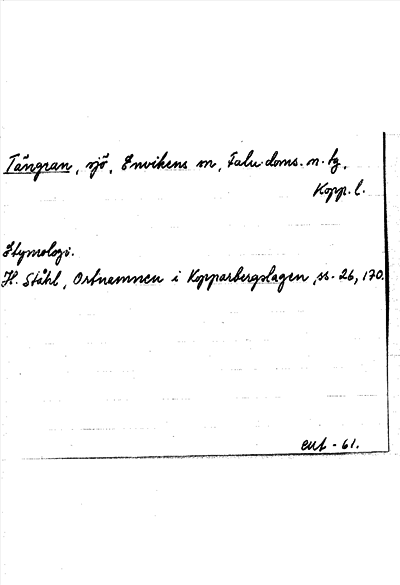 Tängran, sjö, Envikens sn, Falu doms. n. tg,
Kopp. l.
Etymologi.
H. Ståhl, Ortnamnen i Kopparbergslagen, ss. 26, 170.
-61.